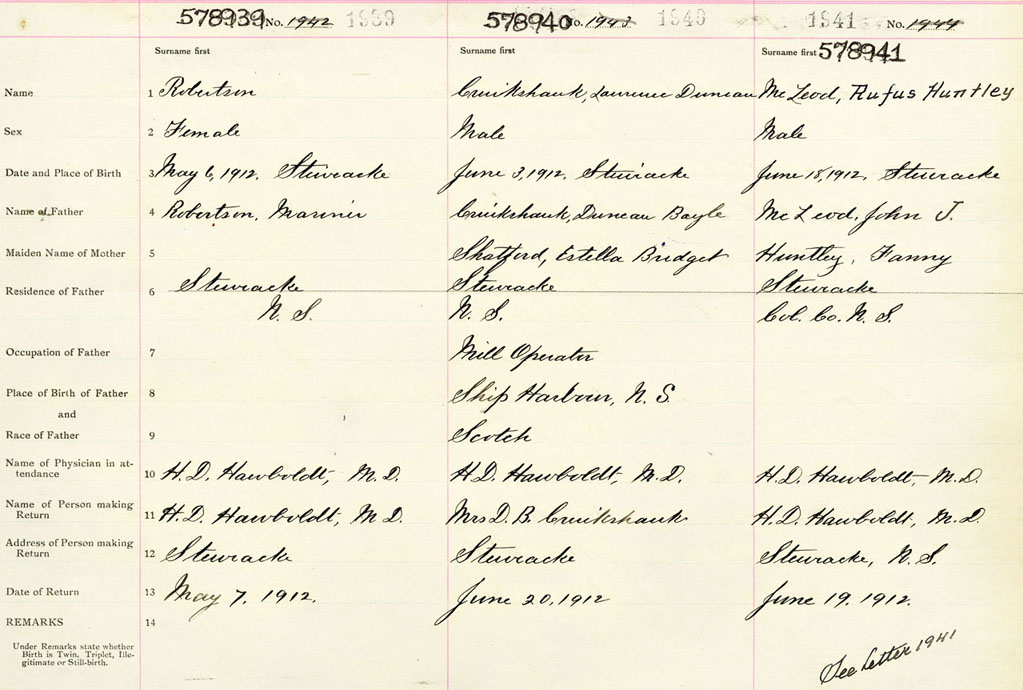 578939 No. 1942 1939 578940 No. 1943 1940 1941 No. 1944
Surname first Surname first Surname first 578941
Name 1 Robertson Cruikshank, Laurence Duncan McLeod, Rufus Huntley
Sex 2 Female Male Male
Date and Place of Birth 3 May 6, 1912. Stewiacke June 3, 1912. Stewiacke June 18, 1912. Stewiacke
Name of Father 4 Robertson, Mariner Cruikshank, Duncan Bayle McLeod, John J.
Maiden Name of Mother 5 Shatford, Estella Bridget Huntley, Fanny
Residence of Father 6 Stewiacke Stewiacke Stewiacke
N. S. N. S. Col. Co. N. S.
Occupation of Father 7 Mill Operator
Place of Birth of Father 8 Ship Harbour, N. S.
and
Race of Father 9 Scotch
Name of Physician in at-
tendance 10 H. D. Hawboldt, M. D. H. D. Hawboldt, M. D. H. D. Hawboldt, M. D.
Name of Person making
Return 11 H. D. Hawboldt, M. D. Mrs D. B. Cruikshank H. D. Hawboldt, M. D.
Address of Person making
Return 12 Stewiacke Stewiacke Stewiacke, N. S.
Date of Return 13 May 7, 1912. June 20, 1912 June 19, 1912.
REMARKS 14
Under Remarks state whether
Birth is Twin, Triplet, Ille-
gitimate or Still-birth.
See Letter 1941